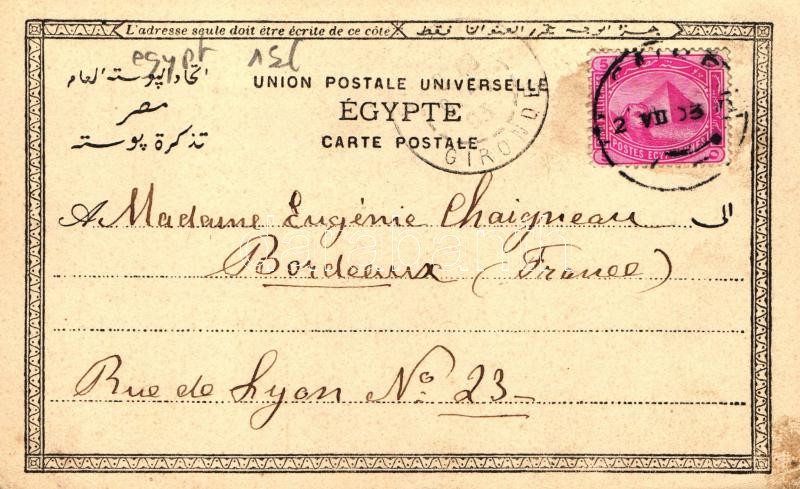 L'adresse seule doit être écrite de ce côté هذا الوجه يحرر العنوان فقط
egypt
اتحاد البوسته العام
مصر
تذكرة بوسته
UNION POSTALE UNIVERSELLE
ÉGYPTE
CARTE POSTALE
GIRONDE
2 VII 03
POSTES EGYPTIENNES
A Madame Eugénie Chaigneau
الى
Bordeaux (France)
Rue de Lyon No 23-